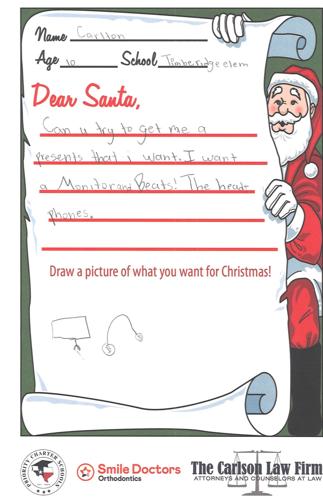 Name Carllon
Age 10 School Timberidge elem
Dear Santa,
Can u try to get me a
presents that i want. I want
a Monitor and Beats! The head-
phones.
Draw a picture of what you want for Christmas!
PRIORITY CHARTER SCHOOLS
Smile Doctors
Orthodontics
The Carlson Law Firm
ATTORNEYS AND COUNSELORS AT LAW